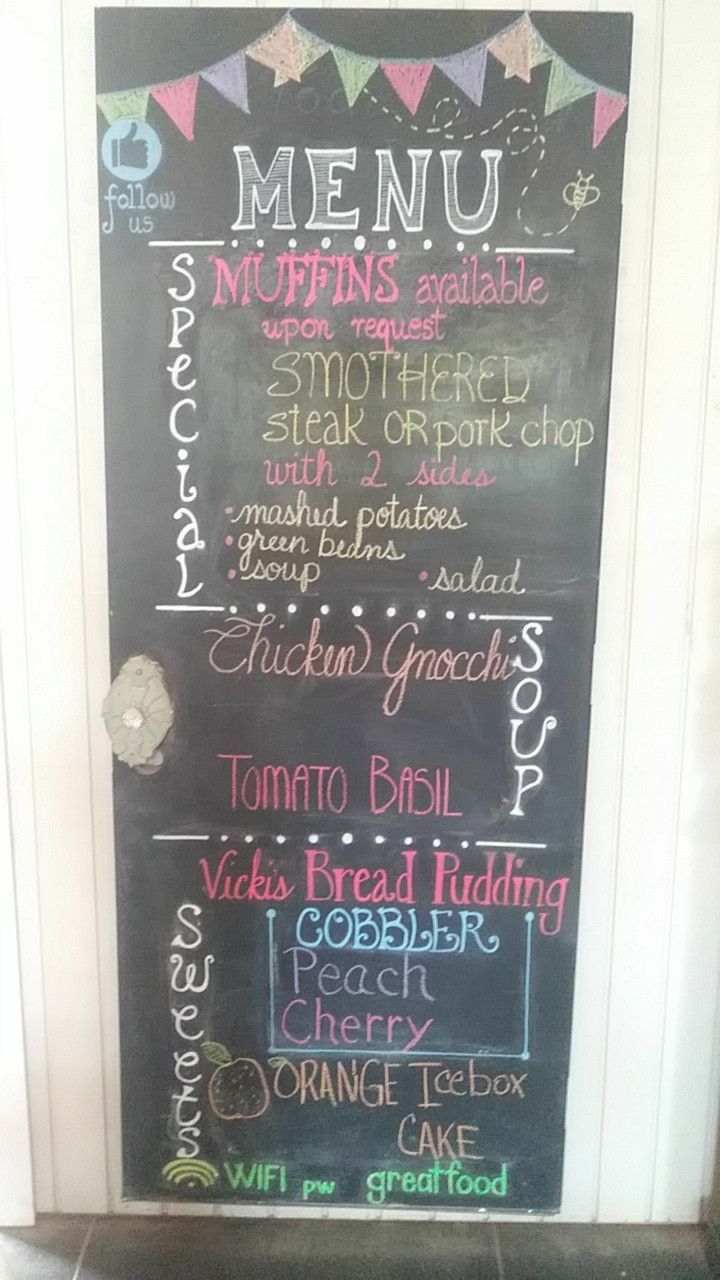 follow
us
MENU
SPeCiaL
MUFFINS available
upon request
SMOTHERED
steak OR pork chop
with 2 sides
• mashed potatoes
• green beans
• soup • salad
SOUP
Chicken Gnocchi
TOMATO BASIL
Sweets
Vickis Bread Pudding
COBBLER
Peach
Cherry
ORANGE Icebox
CAKE
WIFI pw greatfood